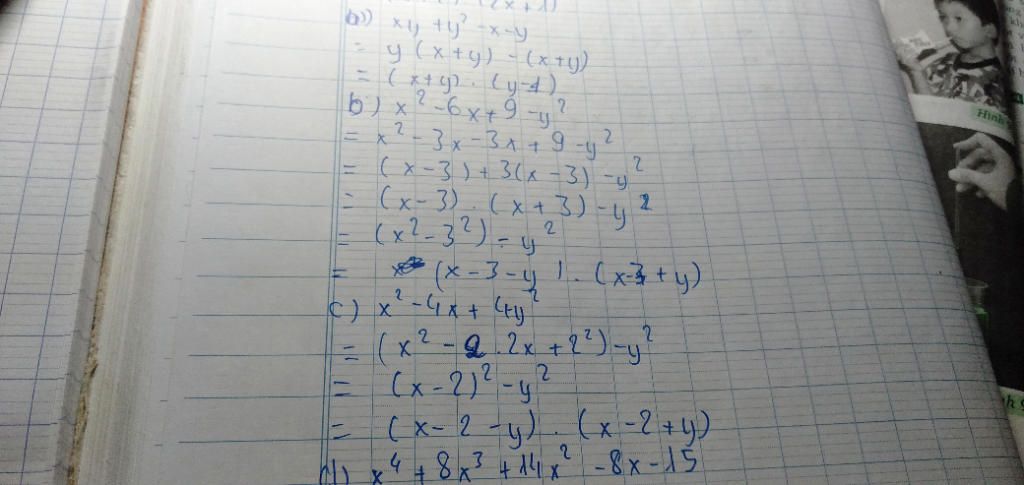 (2x+1)
a)) xy + y² - x - y
= y (x+y) - (x+y)
= (x+y) . (y-1)
b) x² - 6x + 9 - y²
= x² - 3x - 3x + 9 - y²
= (x-3) + 3(x-3) - y²
= (x-3) . (x+3) - y²
= (x² - 3²) - y²
= (x - 3 - y) . (x-3 + y)
c) x² - 4x + 4y²
= (x² - 2 . 2x + 2²) - y²
= (x-2)² - y²
= (x - 2 - y) . (x - 2 + y)
d) x⁴ + 8x³ + 14x² - 8x - 15
Hình